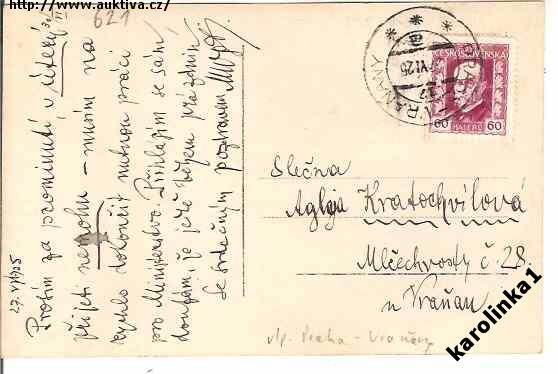 www.auktiva.cz
621
27. VI 25
Prosím za prominutí, v úterý 30/VI
přijeti nemohu – musím na
rychlo dokončit nutnou práci
pro Ministerstvo. Přihlásím se sám,
doufám, že ještě během prázdnin.
Se srdečným pozdravem
VRAŇANY
VI.25
ČESKOSLOVENSKO
60 HALÉŘŮ 60
Slečna
Aglaja Kratochvílová
Mlčechvosty č 28.
u Vraňan
vlp. Praha - Vraňany
karolinka1